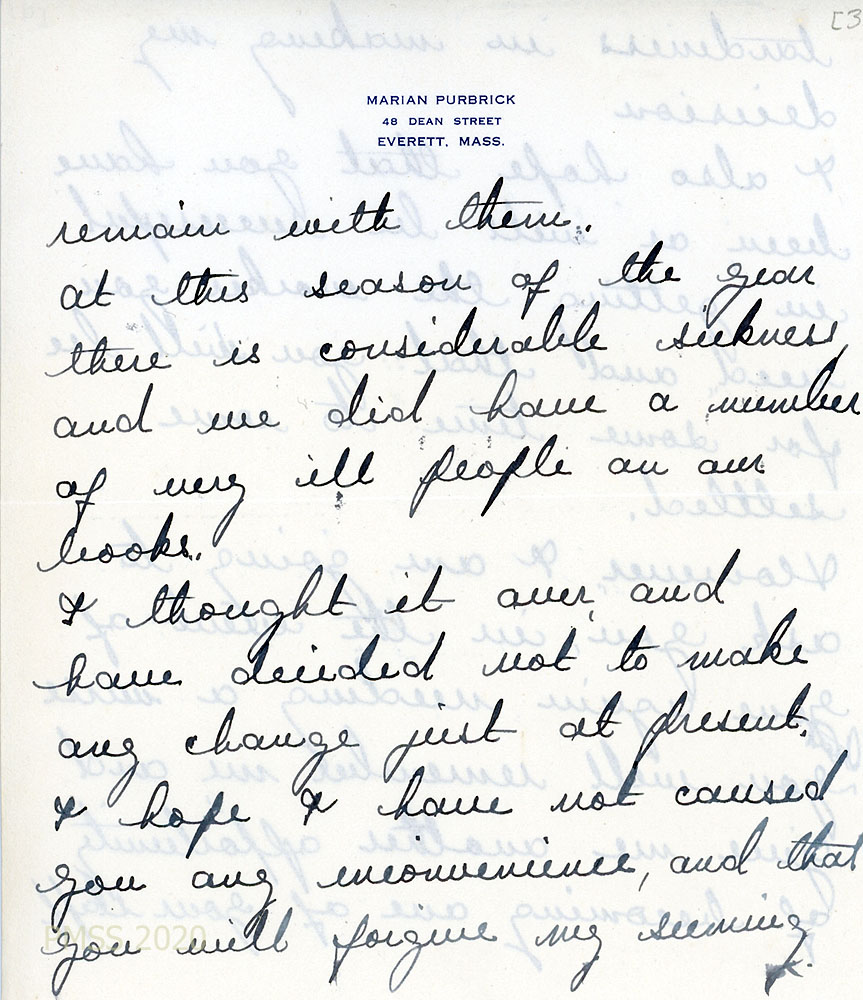 [3
MARIAN PURBRICK
48 DEAN STREET
EVERETT, MASS.
remain with them.
at this season of the year
there is considerable sickness,
and we did have a number
of very ill people on our
books.
I thought it over, and
have decided not to make
any change just at present.
I hope I have not caused
you any inconvenience, and that
you will forgive my seeming
PMSS 2020